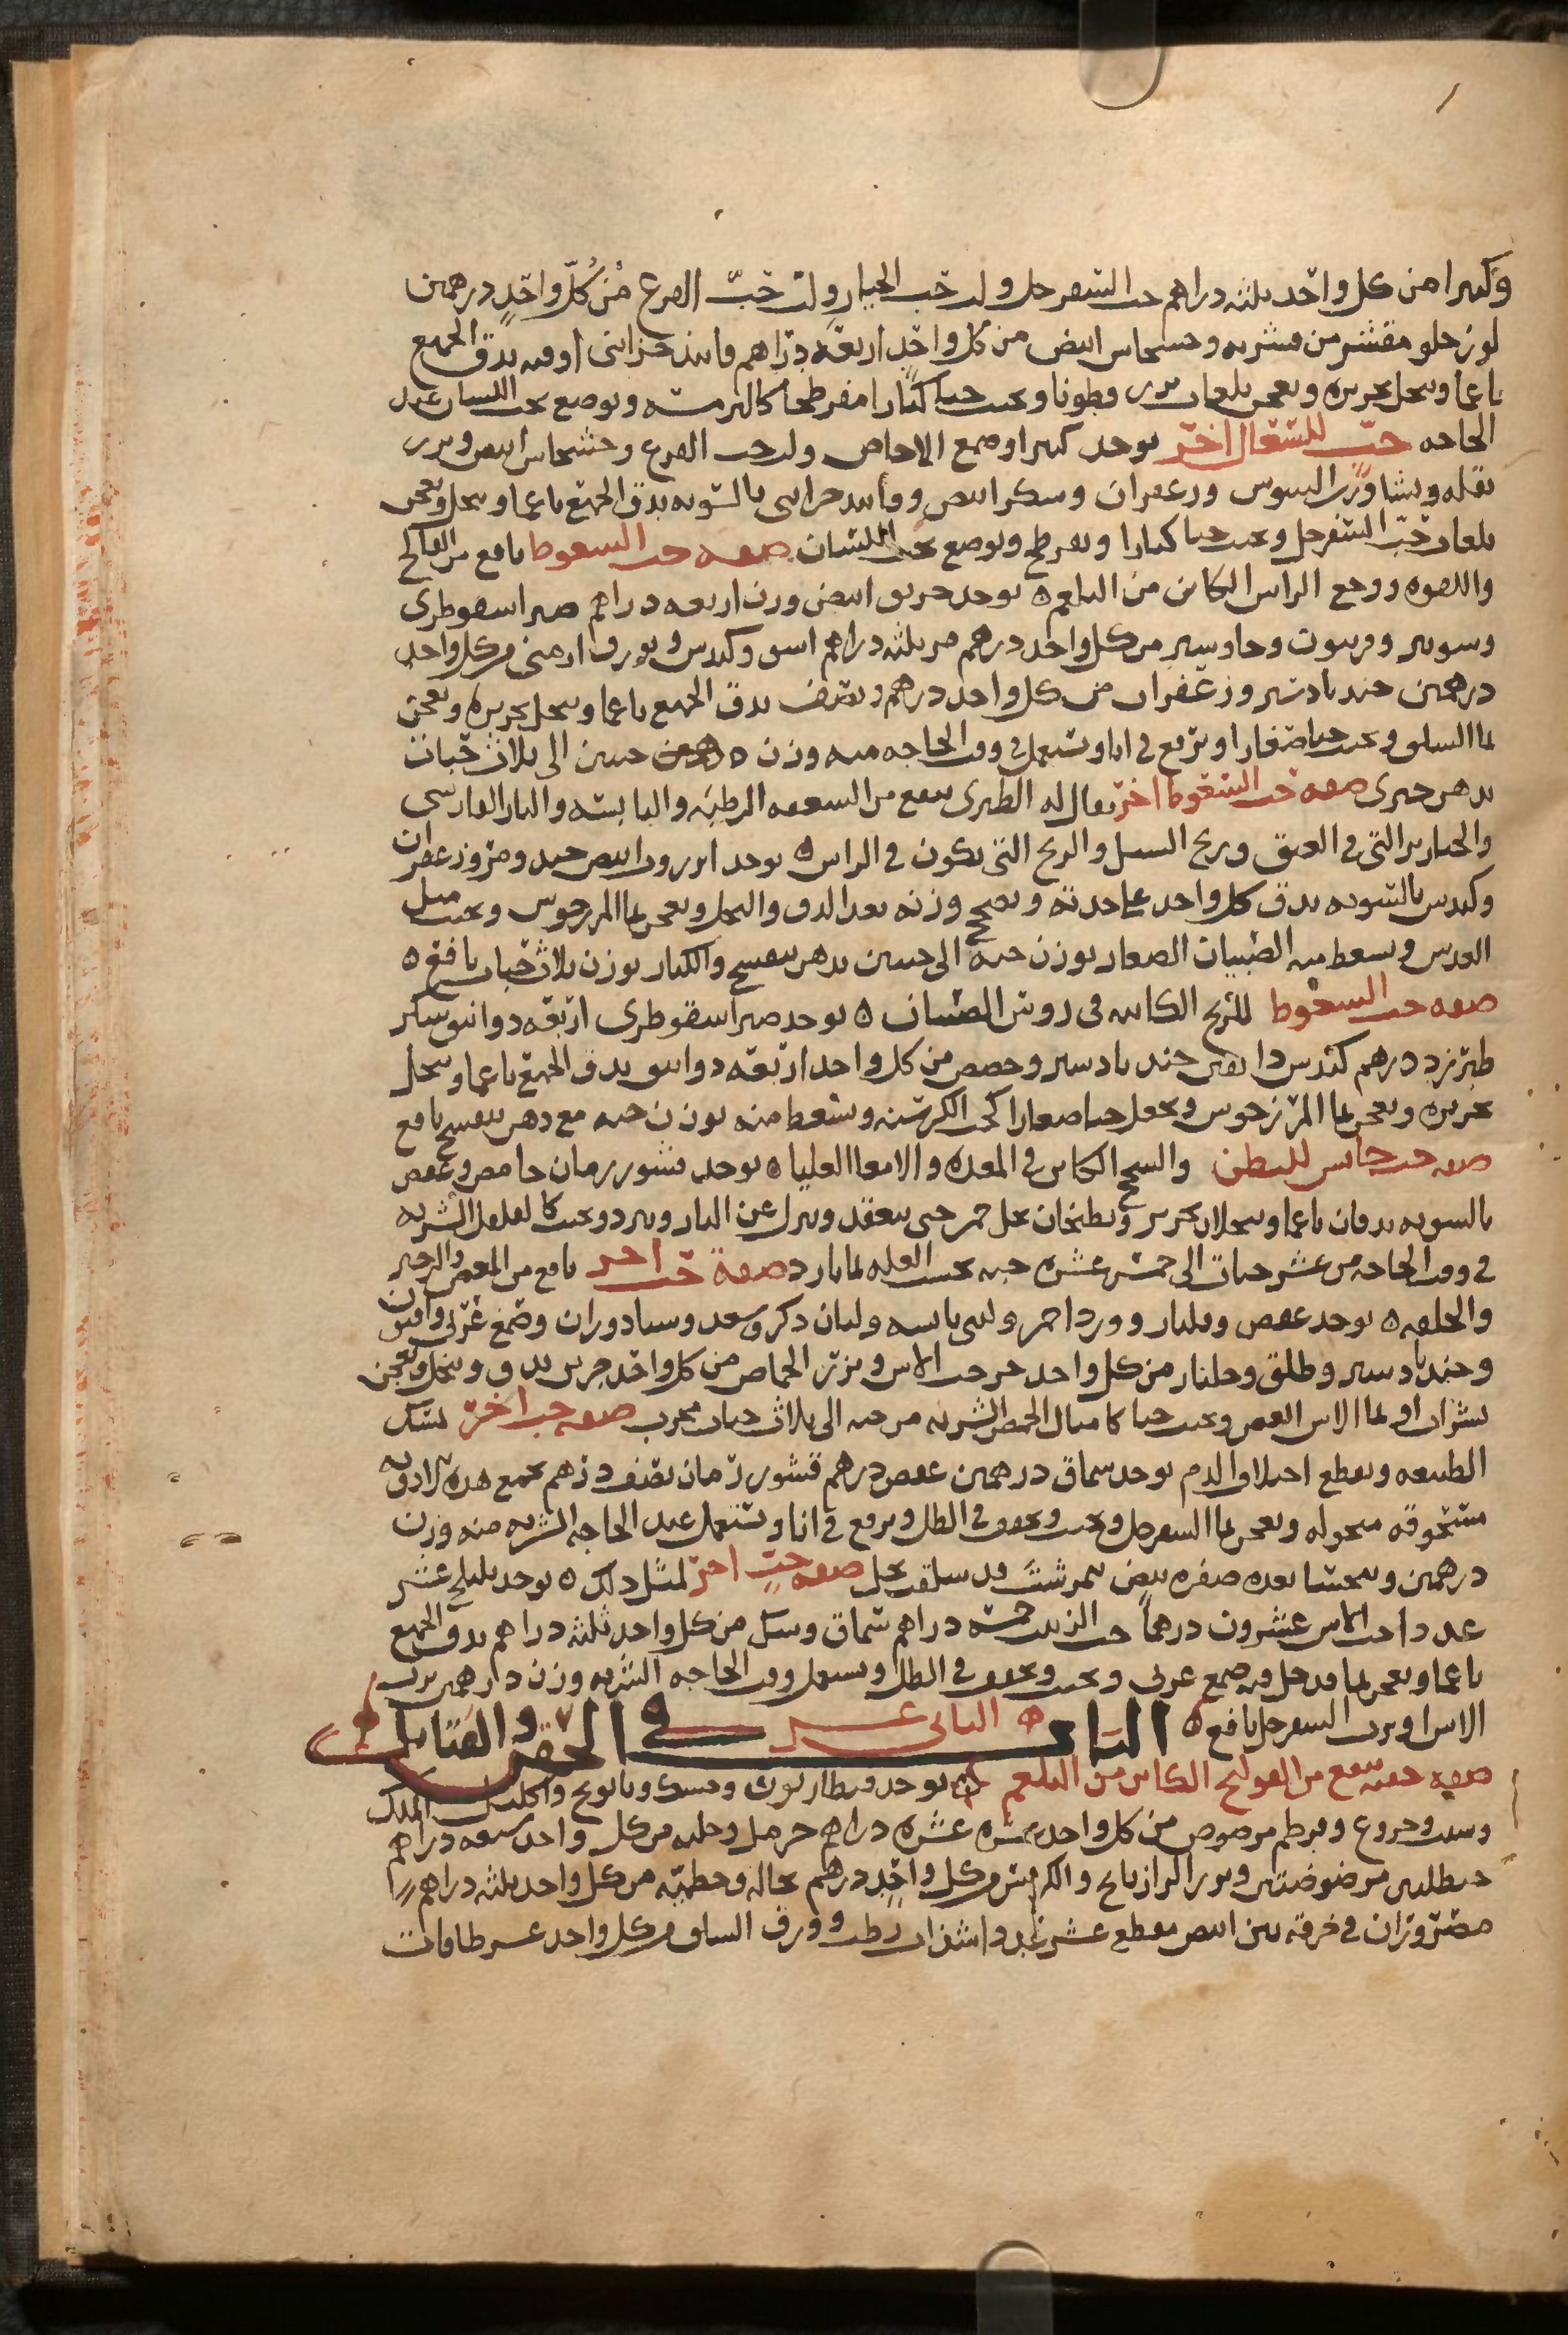 وكثيرا من كل واحد ثلثه دراهم حب السفرجل ولب حب الخيار ولب حب القرع من كل واحد درهمين
لوز حلو مقشر من قشريه وخشخاش ابيض من كل واحد اربعة دراهم فانيذ خزائنى اوقيه يدق الجميع
ناعما وينخل بحريره ويعجن بلعاب بزر قطونا ويحبب حبا كبارا مفرطحا كالترمسه ويوضع تحت اللسان عند
الحاجه حب للسعال اخر يوخذ كثيرا وصمغ الاجاص ولب حب القرع وخشخاش ابيض وبزر
بقله ونشا ورب السوس وزعفران وسكر ابيض وفانيد خزاينى بالسويه يدق الجميع ناعما وينخل ويعجن
بلعاب حب السفرجل ويحبب حبا كبارا ويفرطح ويوضع تحت اللسان صفه حب السعوط نافع من الفالج
واللقوه ووجع الراس الكاين من البلغم ٥ يوخذ خربق ابيض وزن اربعه دراهم صبر اسقوطرى
وشونيز وفربيون وجاوشير من كل واحد درهم مر ثلثه دراهم اشق وكندس وبورق ارمنى من كل واحد
درهمين جند بادستر وزعفران من كل واحد درهم ونصف يدق الجميع ناعما وينخل بحريره ويعجن
بما السلق ويحبب حبا صغارا ويرفع فى انا ويستعمل فى وقت الحاجه منه وزن حبتين الى ثلاث حبات
بدهن خيرى صفه حب السعوط اخر يقال له الطبرى ينفع من السعفه الرطبه واليابسه والنار الفارسى
والخنازير التى فى العنق وريح السبل والريح التى تكون فى الراس ٥ يوخذ انزروت ابيض جيد ومر وزعفران
وكندس بالسويه يدق كل واحد على حدته ويصحح وزنه بعد الدق والنخل ويعجن بما المرزجوس ويحبب مثل
العدس ويسعط منه الصبيان الصغار بوزن حبة الى حبتين بدهن بنفسج والكبار بوزن ثلاث حبات نافع ٥
صفه حب السعوط للريح الكاينه فى روس الصبيان ٥ يوخذ صبر اسقوطرى اربعه دوانيق سكر
طبرزد درهم كندس دانقين جند بادستر وحضض من كل واحد اربعه دوانيق يدق الجميع ناعما وينخل
بحريره ويعجن بما المرزجوس ويجعل حبا صغارا كحب الكرسنه ويسعط منه بوزن حبه مع دهن بنفسج نافع
صفه حب حابس للبطن والسحج الكاين فى المعده والامعا العليا ٥ يوخذ قشور رمان حامض وعفص
بالسويه يدقان ناعما وينخلان بحرير ويطبخان بخل خمر حتى ينعقد وينزل عن النار ويبرد ويحبب كالفلفل الشربه
فى وقت الحاجه من عشر حبات الى خمسه عشره حبه بحسب العله بما بارد صفة حب اخر نافع من المغص والزحير
والخلفه ٥ يوخذ عفص وورد احمر ولبان ذكر وسعد وسيادوران وصمغ عربى وافيون
وجند بادستر وطلق وجلنار من كل واحد جز حب الاس وبزر الحماض من كل واحد جزين يدق وينخل ويعجن
بشراب او بما الاس الغض ويحبب حبا كامثال الحمص الشربه من حبه الى ثلاث حبات مجرب صفه حب اخر يمسك
الطبيعه ويقطع اختلاف الدم يوخذ سماق درهمين عفص درهم قشور رمان نصف درهم يجمع هذه الادويه
مسحوقه منخوله ويعجن بما السفرجل ويحبب ويجفف فى الظل ويرفع فى انا ويستعمل عند الحاجه الشربه منه وزن
درهمين ويتحسا بعده صفره بيض نمرشت قد سلقت بخل صفه حب اخر لمثل ذلك ٥ يوخذ عشر
عددا حب الاس عشرون درهماً حب الزبيب خمسه دراهم سماق من كل واحد ثلثه دراهم يدق الجميع
ناعما ويعجن بما قد حل فيه صمغ عربى ويحبب ويجفف فى الظل ويستعمل وقت الحاجه الشربه وزن درهمين برب
الاس او برب السفرجل نافع ٥ الباب الثانى عشر فى الحقن والفتايل
صفه حقنه تنفع من القولنج الكاين من البلغم ٥ يوخذ وحسك وبابونج واكليل الملك
وشبت وخروع وقرطم مرضوض من كل واحد عشره دراهم حرمل وحلبه من كل واحد سبعه دراهم
مرضوضتين وبزر الرازيانج والكرفس من كل واحد درهم نخاله وخطميه من كل واحد ثلثه دراهم
مصروران فى خرقه تين ابيض مقطع عشر عددا سذاب رطب وورق السلق من كل واحد عشر طاقات